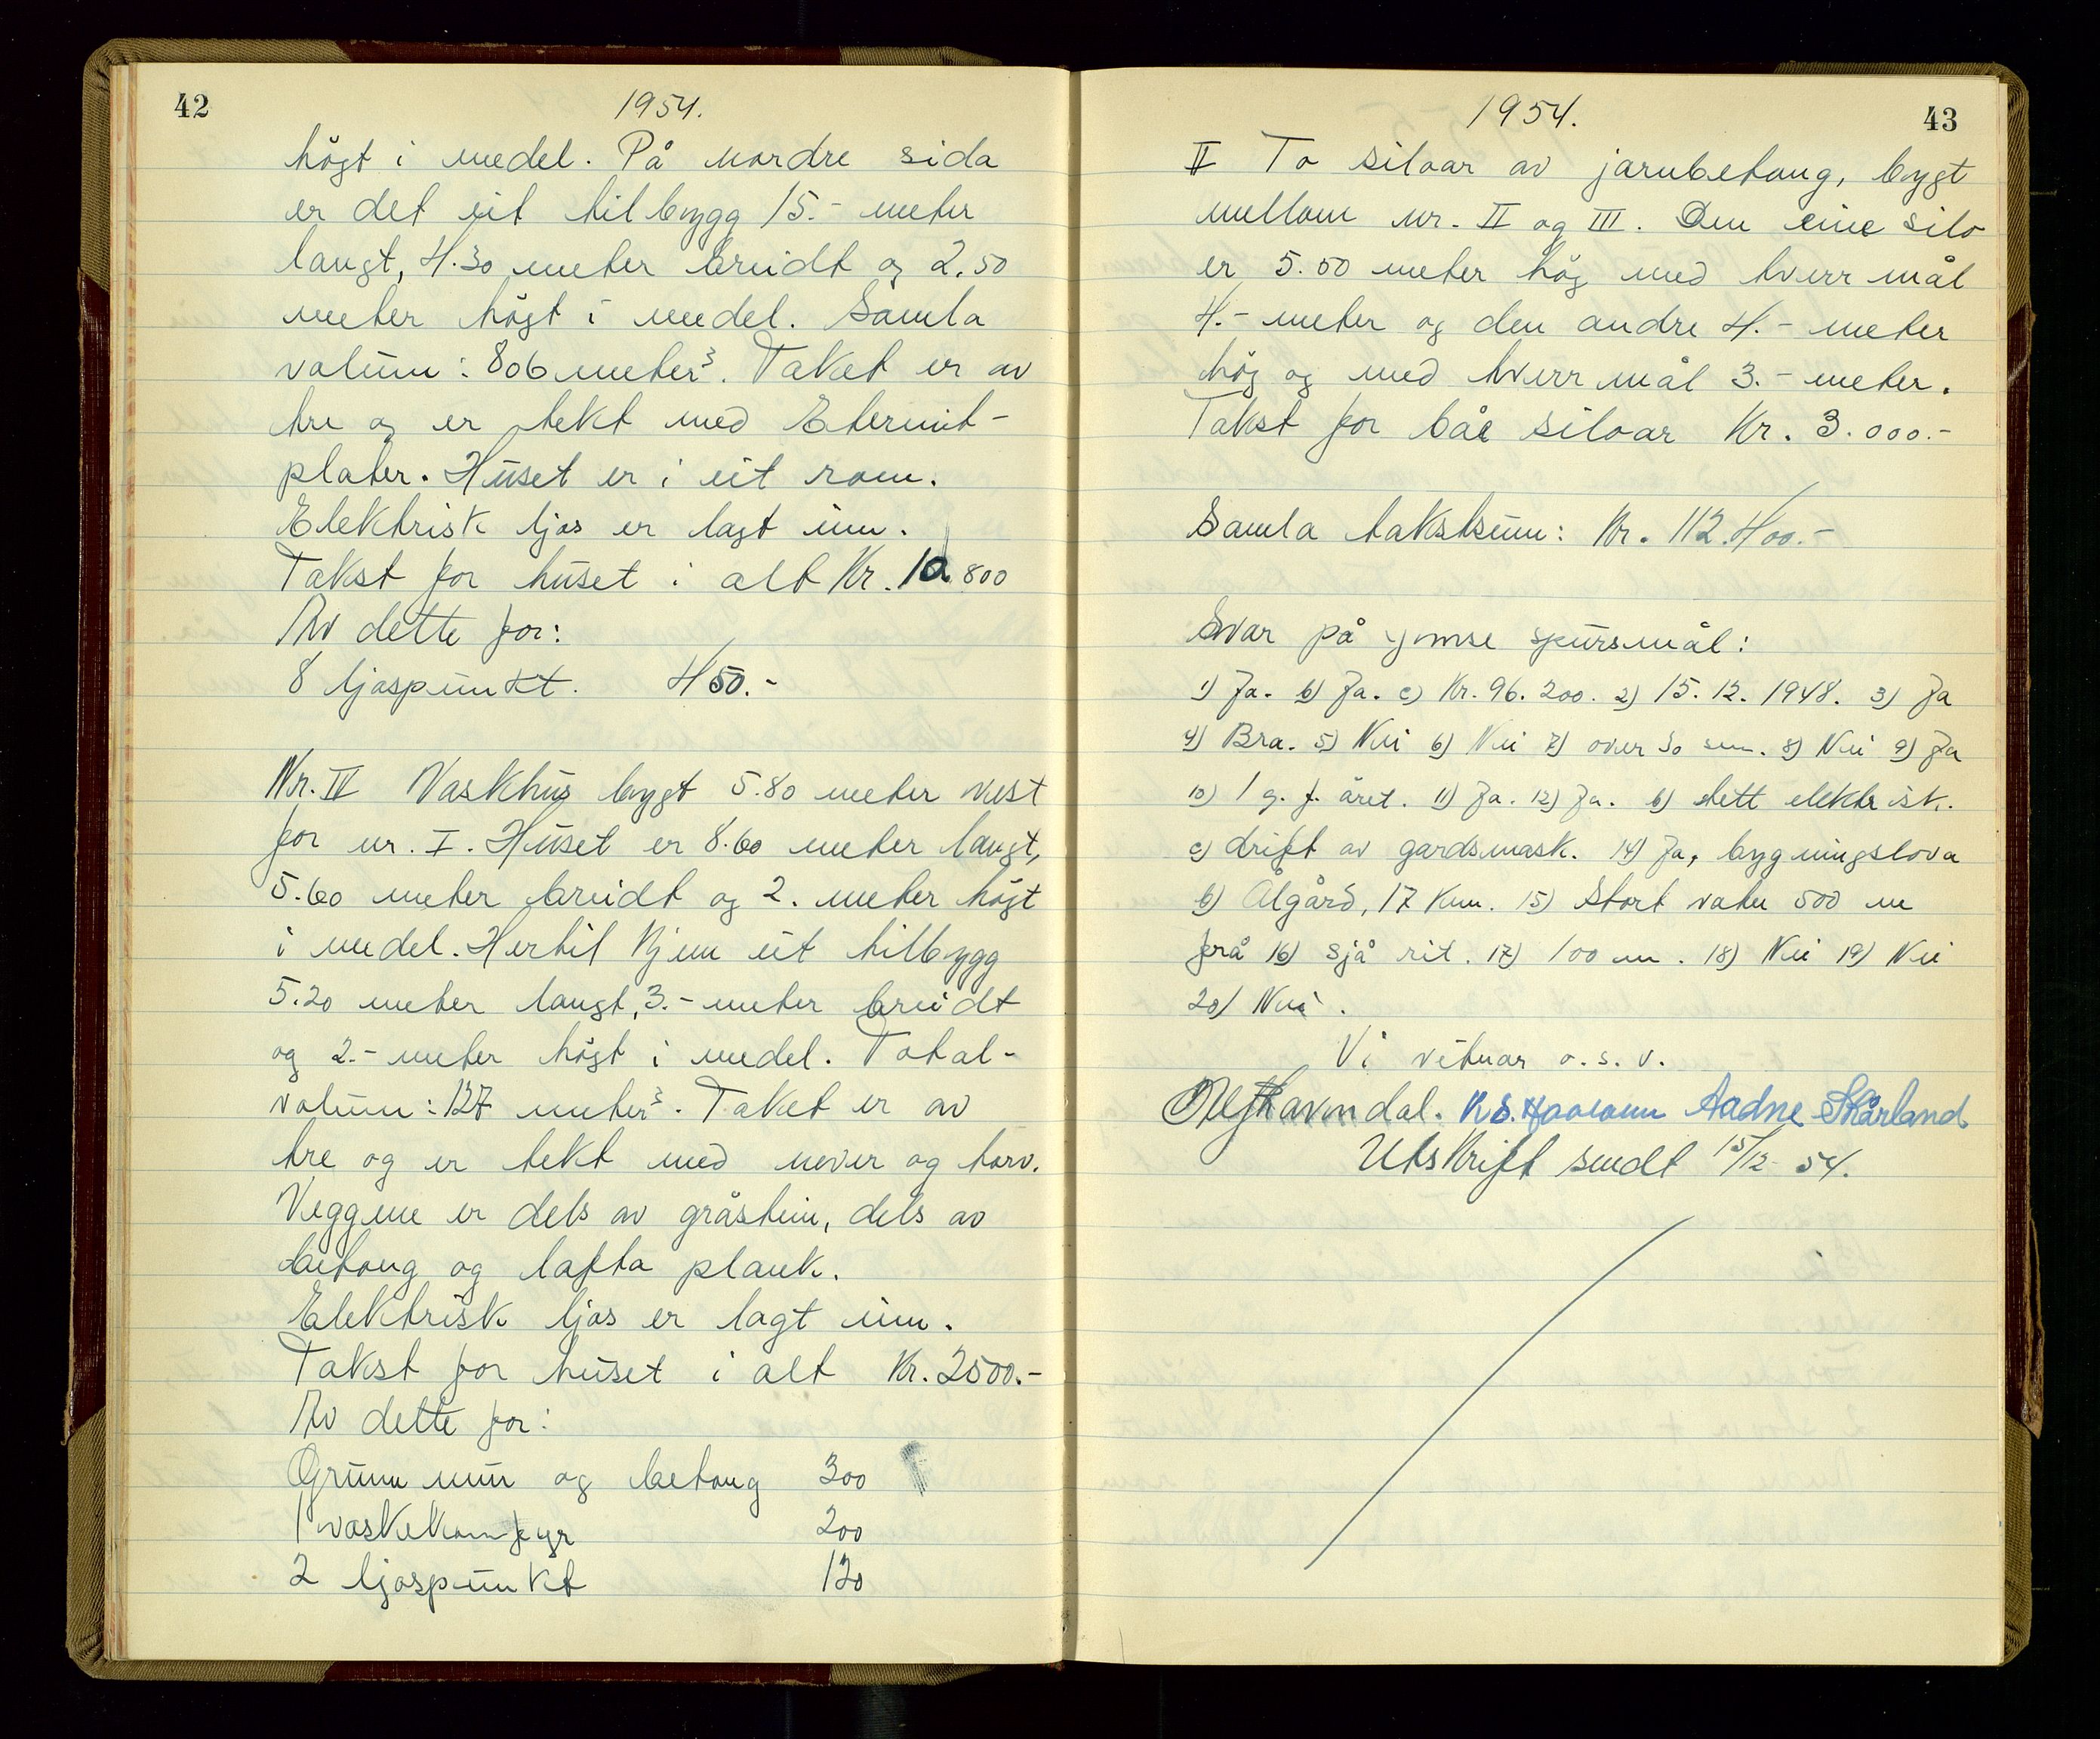 42
1954.
högt i medel. På nordre sida
er det eit tilbygg 15.- meter
langt, 4.30 meter breidt og 2.50
meter högt i medel. Samla
volum: 806 meter³. Taket er av
tre og er tekt med Eternit-
plater. Huset er i eit rom.
Elektrisk ljos er lagt inn.
Takst for huset i alt Kr. 10.800
Av dette for:
8 ljospunkt. 450.-
Nr. IV Vaskhus bygt 5.80 meter vest
for nr. I. Huset er 8.60 meter langt,
5.60 meter breidt og 2. meter högt
i medel. Hertil kjem eit tilbygg
5.20 meter langt, 3.- meter breidt
og 2.- meter högt i medel. Total-
volum: 127 meter³. Taket er av
tre og er tekt med never og torv.
Veggene er dels av gråstein, dels av
betong og lafta plank.
Elektrisk ljos er lagt inn.
Takst for huset i alt Kr. 2500.-
Av dette for:
Grunn mur og betong 300
1 vaskekomfyr 200
2 ljospunkt 120
43
1954.
V To siloar av jarnbetong, bygt
mellom nr. II og III. Den eine silo
er 5.50 meter hög med tverr mål
4.- meter og den andre 4.- meter
hög og med tverr mål 3.- meter.
Takst for båe siloar Kr. 3.000.-
Samla takstsum: Kr. 112.400.-
Svar på ymse spursmål:
1) Ja. b) Ja. c) Kr. 96.200. 2) 15.12.1948. 3) Ja
4) Bra. 5) Nei 6) Nei 7) over 30 sm. 8) Nei 9) Ja
10) 1 g. f. året. 11) Ja. 12) Ja. b) slett elektrisk.
c) drift av gardsmask. 14) Ja, bygningslova
b) Ålgård, 17 km. 15) Stort vatn 500 m
frå 16) sjå rit. 17) 100 m. 18) Nei 19) Nei
20) Nei.
Vi vitnar o.s.v.
Olf Ravndal. Aadne Skårland
Utskrift sendt 15/12 54.